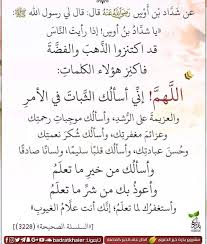 عن شدَّاد بن أَوْسٍ رَضِيَ اللهُ عَنْهُ قال: قال لي رسول الله ﷺ:
«يا شدَّادُ بنُ أوسٍ! إذا رأيتَ النَّاسَ
قد اكتنزوا الذَّهبَ والفضَّةَ
فاكنِزْ هؤلاءِ الكلماتِ:
اللَّهمَّ! إنِّي أسألُكَ الثَّباتَ في الأمرِ
والعزيمةَ عن الرُّشدِ، وأسألُكَ موجباتِ رحمتِكَ
وعزائمَ مغفرتِكَ، وأسألُكَ شُكرَ نعمتِكَ
وحُسنَ عبادتِكَ، وأسألُكَ قلبًا سليمًا، ولسانًا صادقًا
وأسألُكَ من خيرِ ما تعلَمُ
وأعوذُ بك من شرِّ ما تعلَمُ
وأستغفرُكَ لما تعلَمُ؛ إنَّكَ أنت علَّامُ الغيوبِ»
[«السلسلة الصحيحة» (3228)]
badratkhaler